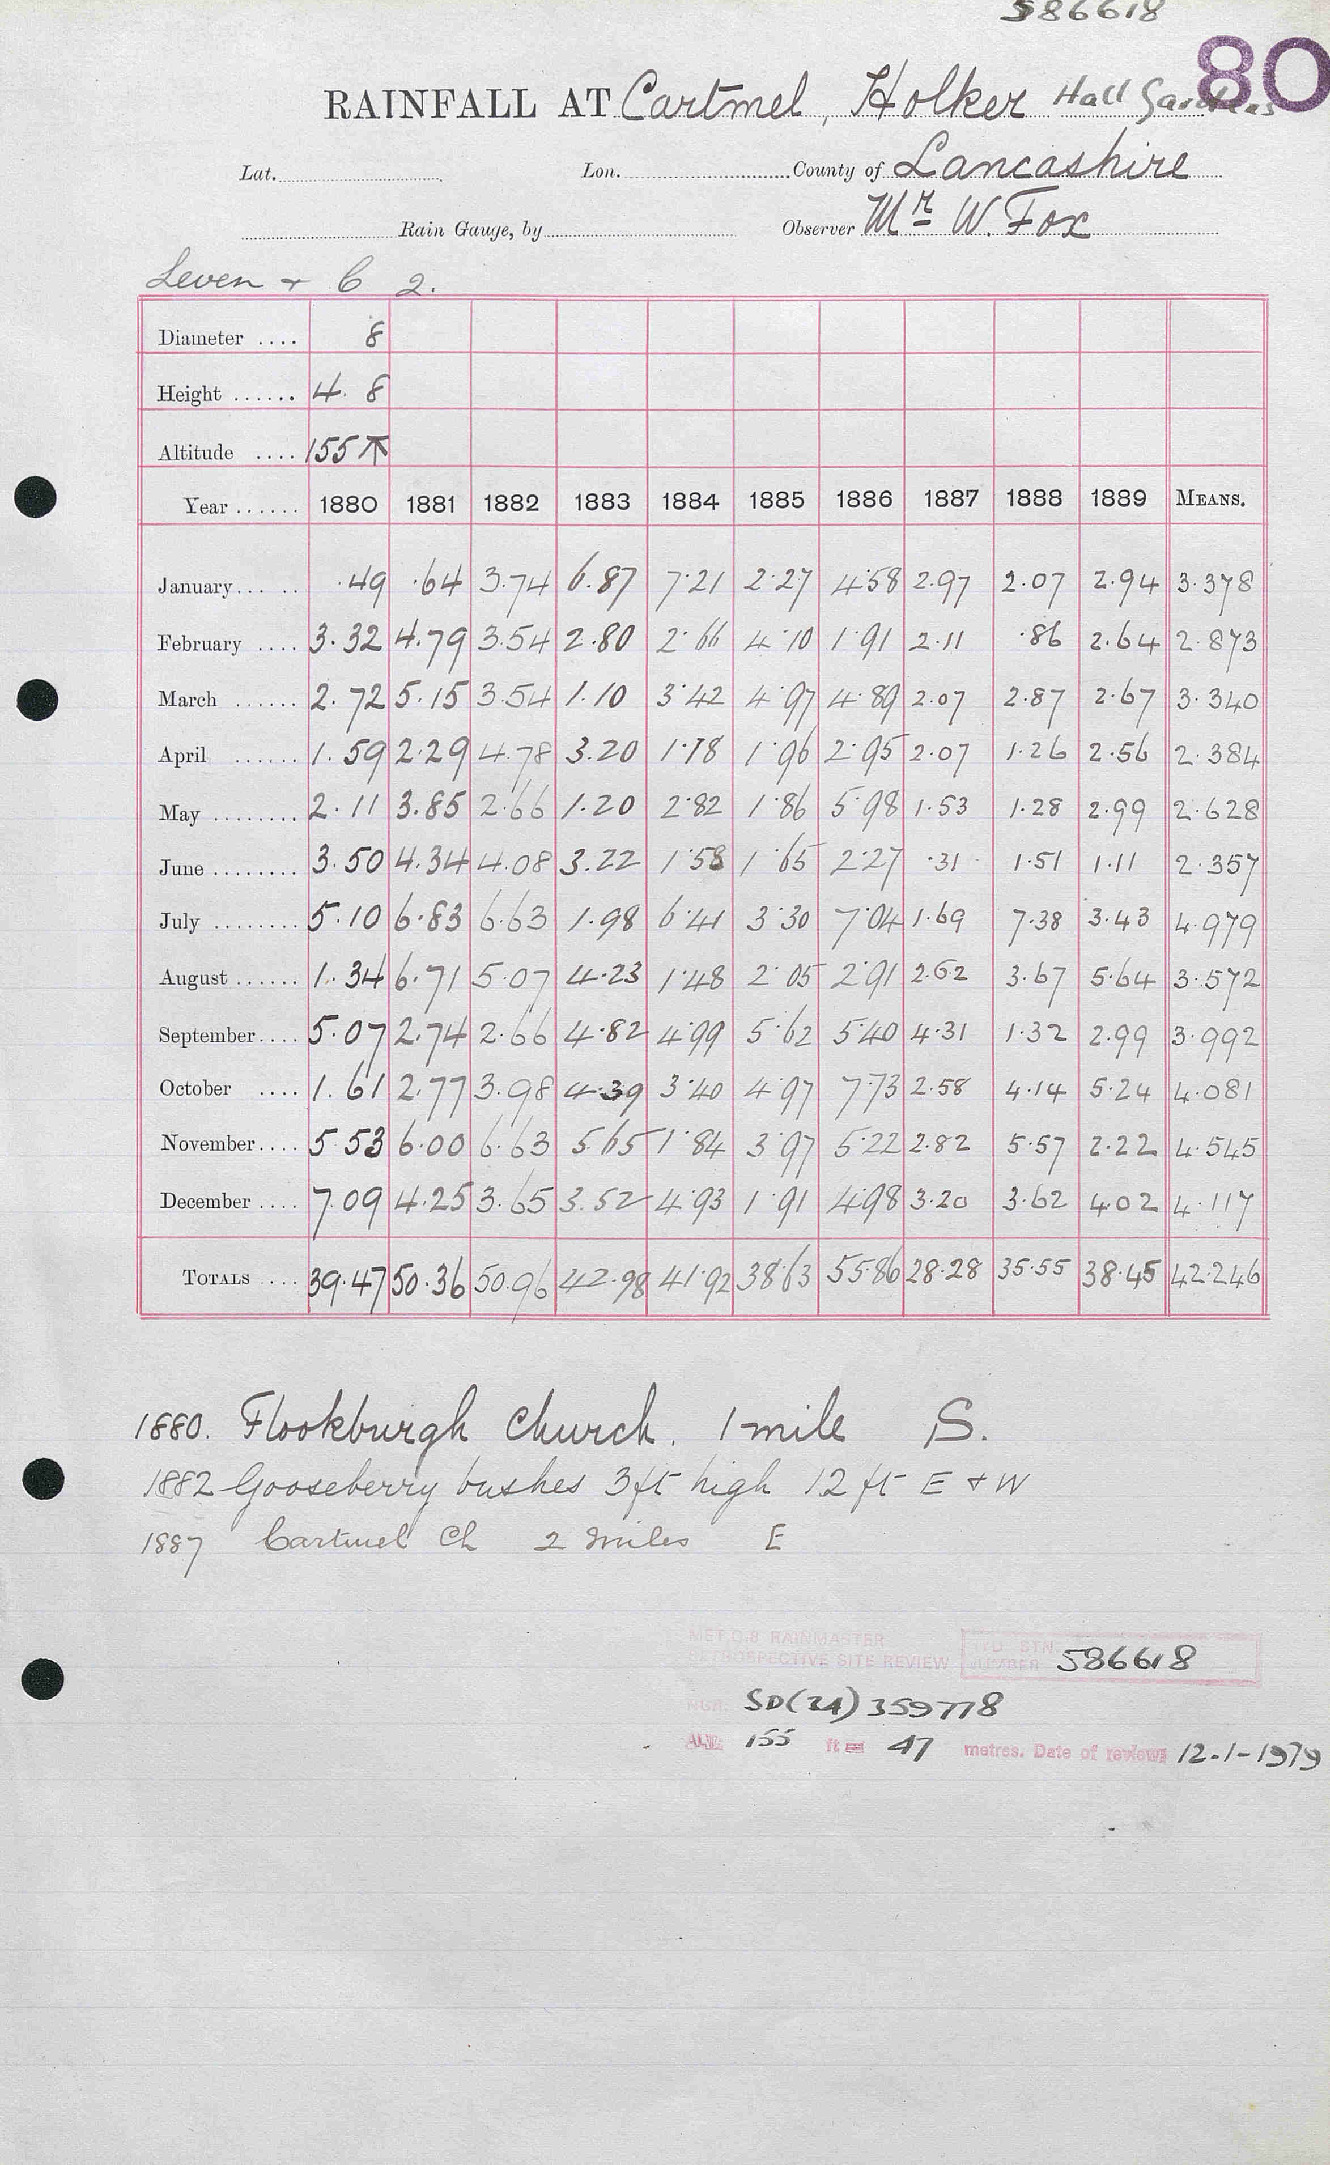 586618
80
RAINFALL AT Cartmel, Holker Hall Gardens
Lat. Lon. County of Lancashire
Rain Gauge, by Observer Mr W. Fox
Leven + C 2.
Diameter .... 8
Height ...... 4 8
Altitude .... 155
Year ...... 1880 1881 1882 1883 1884 1885 1886 1887 1888 1889 MEANS.
January ..... .49 .64 3.74 6.87 7.21 2.27 4.58 2.97 2.07 2.94 3.378
February .... 3.32 4.79 3.54 2.80 2.66 4.10 1.91 2.11 .86 2.64 2.873
March ...... 2.72 5.15 3.54 1.10 3.42 4.97 4.89 2.07 2.87 2.67 3.340
April ...... 1.59 2.29 4.78 3.20 1.18 1.96 2.95 2.07 1.26 2.56 2.384
May ........ 2.11 3.85 2.66 1.20 2.82 1.86 5.98 1.53 1.28 2.99 2.628
June ........ 3.50 4.34 4.08 3.22 1.58 1.65 2.27 .31 1.51 1.11 2.357
July ........ 5.10 6.83 6.63 1.98 6.41 3.30 7.04 1.69 7.38 3.43 4.979
August ...... 1.34 6.71 5.07 4.23 1.48 2.05 2.91 2.62 3.67 5.64 3.572
September .... 5.07 2.74 2.66 4.82 4.99 5.62 5.40 4.31 1.32 2.99 3.992
October .... 1.61 2.77 3.98 4.39 3.40 4.97 7.73 2.58 4.14 5.24 4.081
November .... 5.53 6.00 6.63 5.65 1.84 3.97 5.22 2.82 5.57 2.22 4.545
December .... 7.09 4.25 3.65 3.52 4.93 1.91 4.98 3.20 3.62 4.02 4.117
TOTALS .... 39.47 50.36 50.96 42.98 41.92 38.63 55.86 28.28 35.55 38.45 42.246
1880. Flookburgh Church. 1 mile S.
1882 Gooseberry bushes 3ft high 12 ft E + W
1887 Cartmel Ch 2 miles E
MET.O.8 RAINMASTER
RETROSPECTIVE SITE REVIEW STN. NUMBER 586618
NGR. SD(34)359778
ALT. 155 ft = 47 metres. Date of review: 12-1-1979